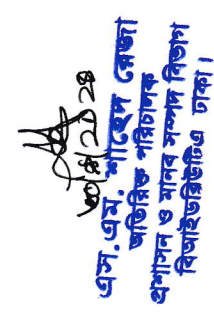 এস.এম. শাহেদ রেজা
অতিরিক্ত পরিচালক
প্রশাসন ও মানব সম্পদ বিভাগ
বিআইডব্লিউটিএ ঢাকা।